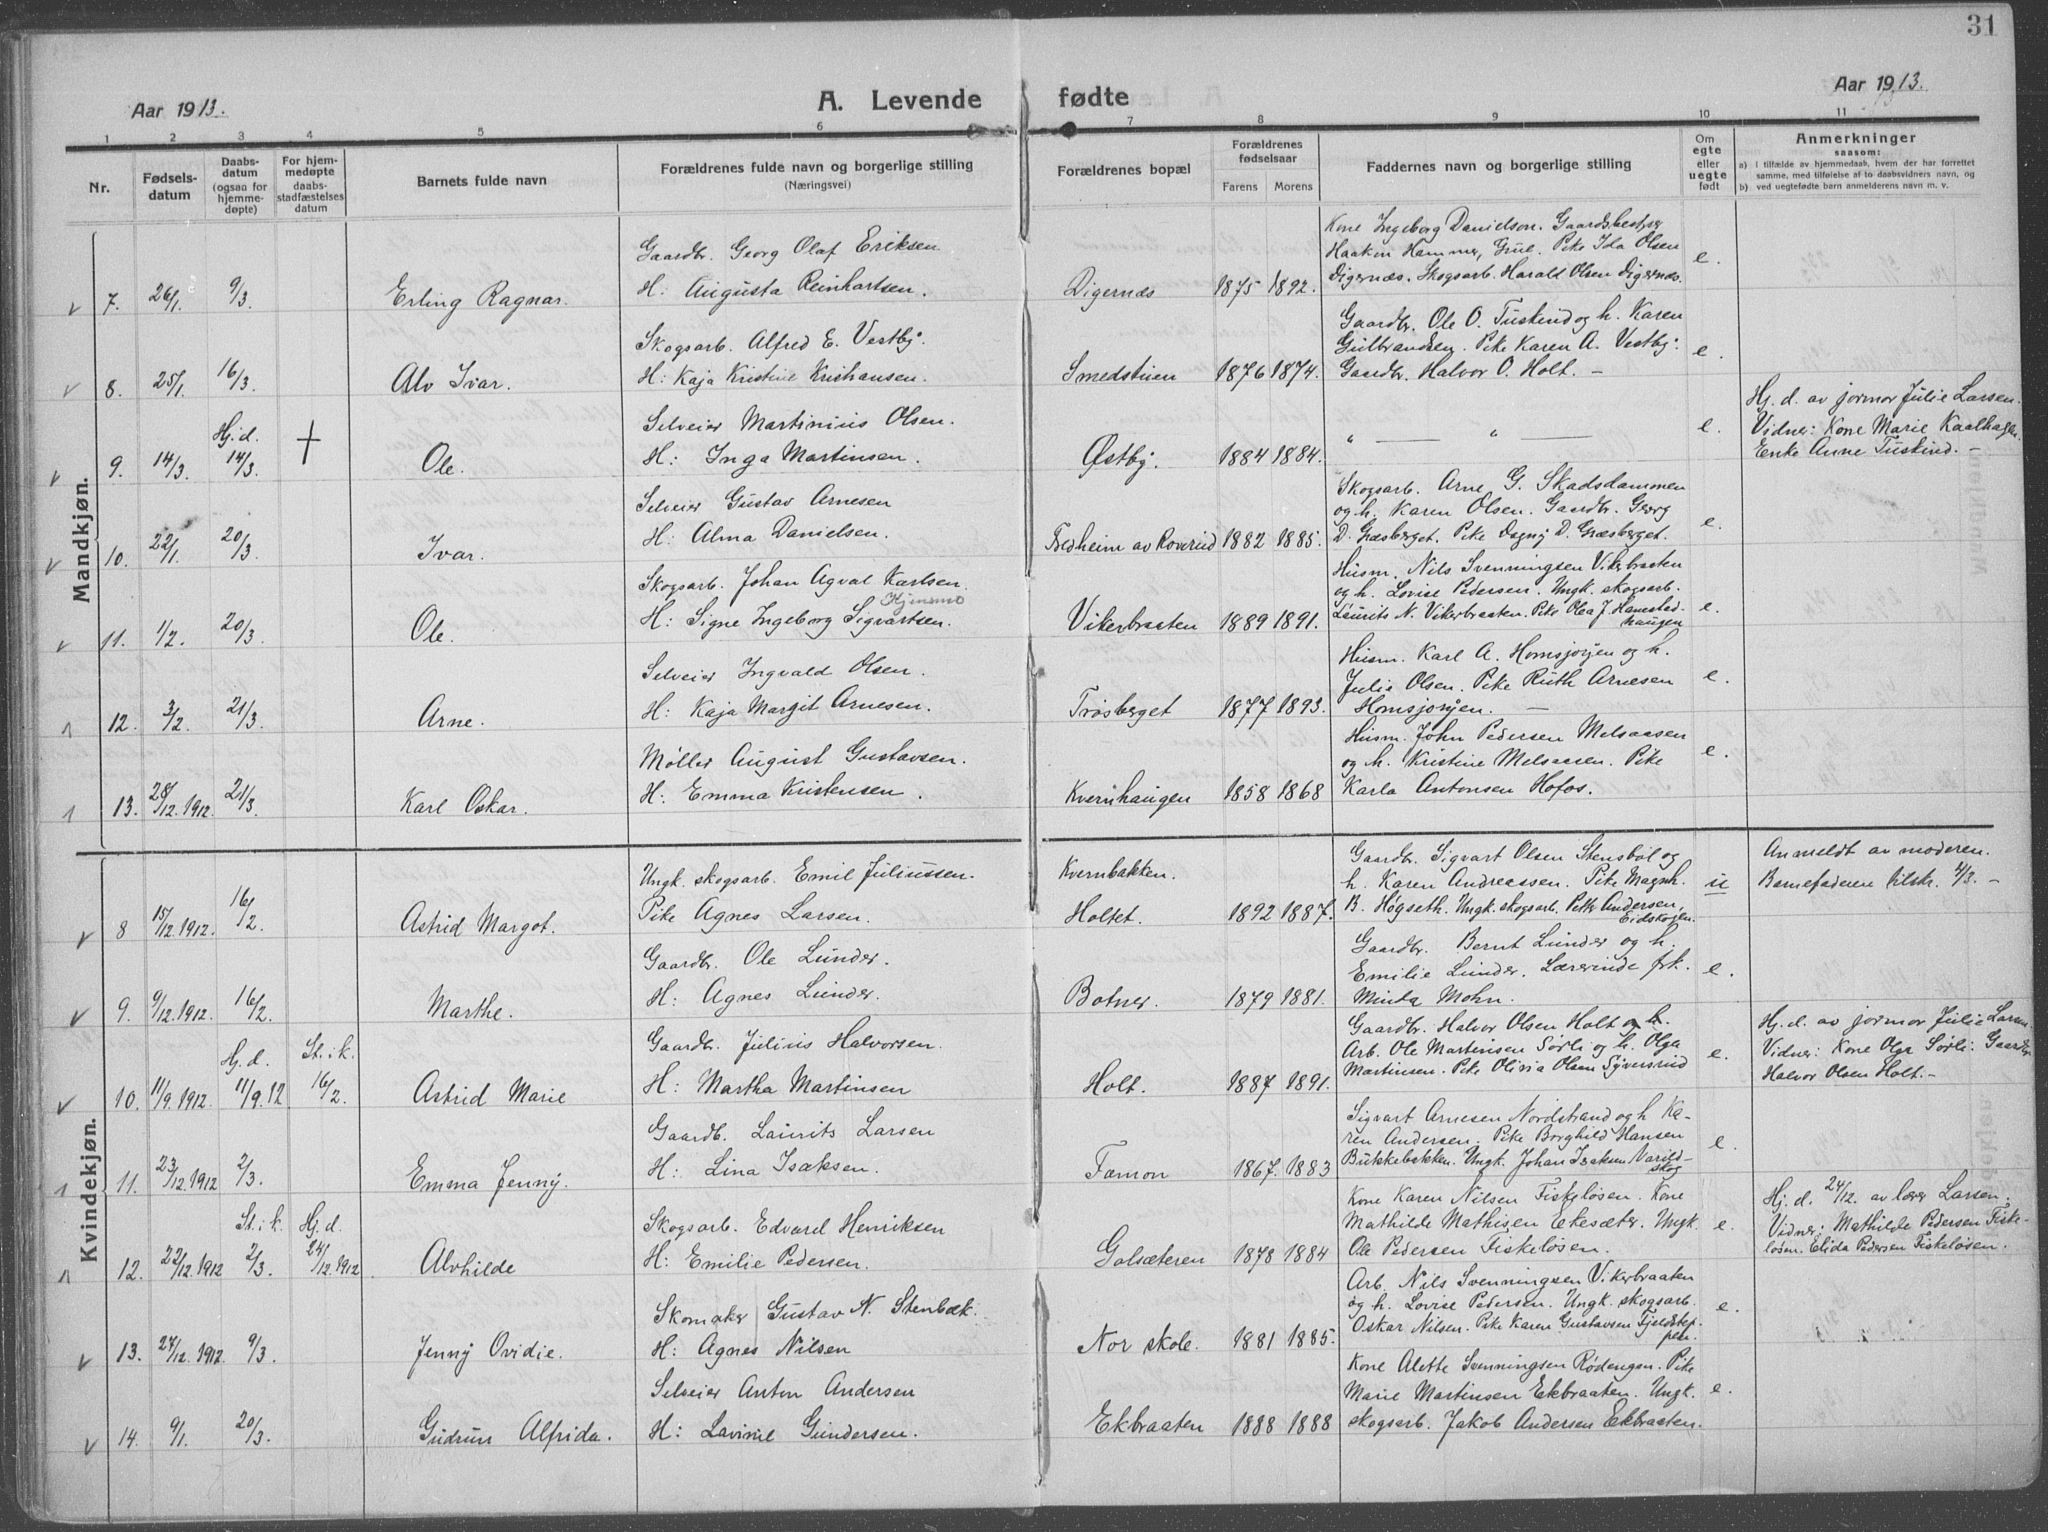 31
Aar 1913.
A. Levende fødte
Aar 1913.
1 2 3 4 5 6 7 8 9 10 11
Nr.
Fødsels-
datum
Daabs-
datum
(ogsaa for
hjemme-
døpte)
For hjem-
medøpte
daabs-
stadfæstelses
datum
Barnets fulde navn
Forældrenes fulde navn og borgerlige stilling
(Næringsvei)
Forældrenes bopæl
Forældrenes
fødselsaar
Farens Morens
Faddernes navn og borgerlige stilling
Om
egte
eller
uegte
født
Anmerkninger
saasom:
a) i tilfælde av hjemmedaab, hvem der har forrettet
samme, med tilføielse af to daabsvidners navn, og
b) ved uegtefødte barn anmelderens navn m. v.
Mandkjøn.
7. 26/1. 9/3 Erling Ragnar.
Gaardbr. Georg Olaf Eriksen
H: Augusta Reinhartsen.
Digernæs 1875 1892.
Kone Ingeborg Danielson. Gaardsbestyrer
Haakon Hammer, Grue. Pike Ida Olsen
Digernæs. Skogsarb. Harald Olsen Digernæs.
e.
8. 25/1. 16/3. Alv Ivar.
Skogsarb. Alfred E. Vestby.
H: Kaja Kristine Kristiansen.
Smedstuen 1876 1874.
Gaardbr. Ole O. Tuskind og h. Karen
Gulbrandsen. Pike Karen A. Vestby.
Gaardbr. Halvor O. Holt. —
e.
9. 14/3. Hj. d. 14/3. † Ole.
Selveier Martinius Olsen.
H: Inga Martinsen.
Østby. 1884 1884.
" — " —
e.
Hj. d. av jormor Julie Larsen.
Vidner: Kone Marie Kaalhagen.
Enke Anne Tuskind. —
10. 22/1. 20/3. Ivar.
Selveier Gustav Arnesen
H: Alma Danielsen.
Fredheim av Roverud 1882 1885.
Skogsarb. Arne G. Skadsdammen
og h. Karen Olsen. Gaardbr. Georg
D. Græsberget. Pike Dagny D. Græsberget.
e.
11. 1/2. 20/3. Ole.
Skogsarb. Johan Agval Karlsen.
H: Signe Ingeborg Sigvartsen.
Vikerbraaten 1889 1891.
Husm. Nils Svenningsen Vikerbraaten
og h. Lovise Pedersen. Ungk. skogsarb.
Laurits N. Vikerbraaten. Pike Olea J. Hamstad-
haugen
e.
12. 3/2. 21/3. Arne.
Selveier Ingvald Olsen.
H: Kaja Margit Arnesen.
Trøsberget 1877 1893.
Husm. Karl A. Homsjøryen og h.
Julie Olsen. Pike Ruth Arnesen
Homsjøryen. —
e.
13. 28/12. 1912. 21/3. Karl Oskar.
Møller August Gustavsen.
H: Emma Kristensen.
Kvernhaugen 1858 1868
Husm. John Pedersen Melsaasen
og h. Kristine Melsaasen. Pike
Karla Antonsen Hofos.
e.
Kvindekjøn.
8 15/12. 1912. 16/2. Astrid Margot.
Ungk. skogsarb. Emil Juliussen.
Pike Agnes Larsen.
Kvernbakken.
Holtet. 1892 1887.
Gaardbr. Sigvart Olsen Stensbøl og
h. Karen Andreassen. Pike Magnh.
B. Høgseth. Ungk. skogsarb. Petter Andersen,
Eidskogen.
u
Anmeldt av moderen.
Barnefaderen tilstr. 4/3. —
9. 9/12. 1912. 16/2. Marthe.
Gaardbr. Ole Lunder.
H: Agnes Lunder.
Botner. 1879 1881.
Gaardbr. Bernt Lunder og h.
Emilie Lunder. Lærerinde frk.
Minda Mohn.
e.
10. 11/9. 1912. Hj. d. 11/9. 12 St. i k. 16/2. Astrid Marie
Gaardbr. Julius Halvorsen.
H: Martha Martinsen
Holt. 1887 1891.
Gaardbr. Halvor Olsen Holt og h.
Arb. Ole Martinsen Sørli og h. Olga
Martinsen. Pike Olivia Olsen Syversrud
e.
Hj. d. av jormor Julie Larsen.
Vidner: Kone Olga Sørli. Gaardbr.
Halvor Olsen Holt. —
11. 23/12. 1912 2/3. Emma Jenny.
Gaardb. Laurits Larsen
H: Lina Isaksen.
Tamon 1867. 1883
Sigvart Arnesen Nordstrand og h. Ka-
ren Andersen. Pike Borghild Hansen
Bukkebakken. Ungk. Johan Isaksen Varild-
skog
e.
12. 22/12. 1912 St. i k. 2/3. Hj. d. 24/12. 1912. Alvhilde
Skogsarb. Edvard Henriksen
H: Emilie Pedersen.
Galsæteren 1878 1884
Kone Karen Nilsen Fiskeløsen. Kone
Mathilde Mathisen Ekesæter. Ungk.
Ole Pedersen Fiskeløsen.
e.
Hj. d. 24/12. av lærer Larsen.
Vidner: Mathilde Pedersen Fiske-
løsen. Elida Pedersen Fiskeløsen.
13. 27/12. 1912 9/3. Jenny Ovidie.
Skomaker Gustav N. Stenbæk.
H: Agnes Nilsen
Nor skole. 1881 1885.
Arb. Nils Svenningsen Vikerbraaten
og h. Lovise Pedersen. Ungk. skogsarb.
Oskar Nilsen. Pike Karen Gustavsen
e.
14. 9/1. 20/3. Gudrun Alfrida.
Selveier Anton Andersen
H: Lavine Gundersen.
Ekbraaten 1888 1888
Kone Alette Svenningsen Rødengen. Pike
Marie Martinsen Ekbraaten. Ungk.
skogsarb. Jakob Andersen Ekbraaten.
e.